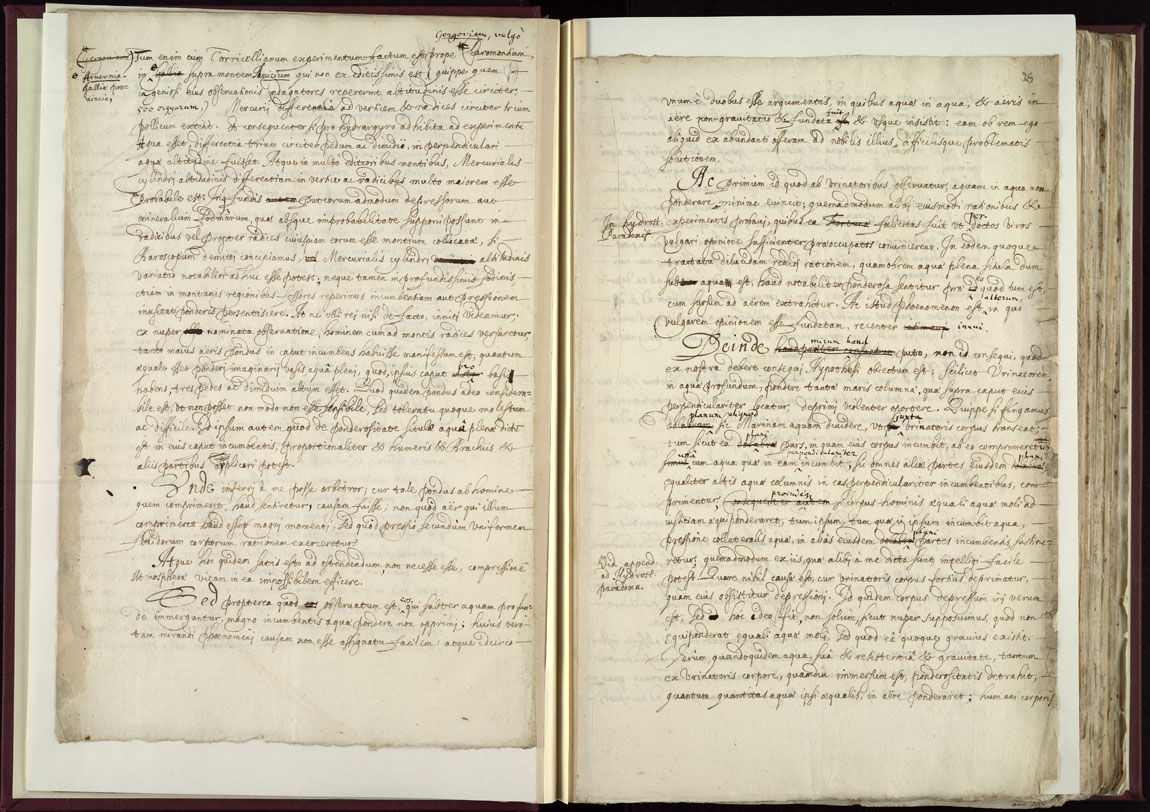 Gergoviam, vulgò
Tum enim cùm Torricellianum experimentum factum est prope Claromontium
Arverniae
Galliæ pro-
vinciæ,
in supra montem qui non ex editissimis est (quippe quem
ingeniosi eius observationis indagatores repererunt altitudinis esse circiter
500 orgyarum,) Mercurij differentia ad verticem & radices circiter trium
pollicum extitit. Et consequenter si pro hydrargyro adhibita ad experimentum
Aqua esset, differentia trium circiter pedum ac dimidio, in perpendiculari
aquæ altitudine fuisset. Atque in multo editioribus montibus, Mercurialis
cylindri altitudinis differentiam in vertice ac radicibus multo maiorem esse
probabile est: In fundis puteorum admodum depressorum aut
mineralium fodinarum, quas absque improbabilitate supponi possunt in
radicibus vel propter radices cuiuspiam eorum esse montium collocatæ, si
Baroscopium demitti concipiamus, Mercurialis cylindri altitudinis
variatio notabilior adhuc esse potest; neque tamen in profundissimis fodinis
etiam in montanis regionibus fossores reperimus incumbentiam aut pressionem
inusitati ponderis persentiscere. At ne ubi rej nisi de facto, inniti videamur;
ex nuper nominata observatione, hominem cum ad montis radices versaretur,
tanto maius aëris pondus in caput incumbens habuisse manifestum est, quantum
æquale esset ponderi imaginarij vasis aquâ pleni, quod, ipsius caput pro basi
habens, tres pedes ac dimidium altum esset. Quod quidem pondus adeo considera-
bile est, ut non posset non modo non esse sensibile, sed toleratu quoque molestum
ac difficile. Id ipsum autem quod de ponderositate situlæ aquâ plenæ dictum
est in eius caput incumbentis, proportionaliter & humeris & brachijs &
alijs partibus applicari potest.
Unde inferri à me posse arbitror; cur tale pondus ab homine
quem comprimeret, haud sentiretur, causam fuisse, non quod aër qui illum
comprimeret haud esset magni momenti, sed quod pressio secundum Uniformem
fluidorum corporum rationem exerceretur.
Atque hoc quidem satis est ad ostendendum, non necesse esse, compressione
Atmosphæræ vitam in ea impossibilem efficere.
Sed propterea quod observatum est, eos qui subter aquam profun-
dè immerguntur, magno incumbentis aquæ pondere non opprimi; huius vero
tam mirandi phænomeni causam non esse assignatu facilem: atque idcirco
25
unum è duobus esse argumentis, in quibus aquæ in aqua, & aëris in
aëre non-gravitatio & fundata fuit & usque insistit: eam ob rem ego
aliquid ex abundanti offeram ad nobilis illius, difficilisque problematis
solutionem.
Ac primùm id quod ab urinatoribus observatur, aquam in aqua non
ponderare minimè evincit; quemadmodum alibj eiusmodi rationibus &
In Hydrost.
Paradoxis
experimentis probavi, quibus ea felicitas fuit ut perdoctos viros
vulgari opinione sufficienter præoccupatos convincerent. In eodem quoque
tractatu dilucidam reddidi rationem, quamobrem aquæ plena situla dum
sub aqua est, haud notabiliter ponderosa sentitur præ eo quod tum est,
cum sursum ad aërem extrahitur. At istud Phænomenon est, in quo saltem,
vulgarem opinionem esse fundatam, recenter innui.
Deinde mirum haud puto, non id consequi, quod
ex nostra debere consequi Hypothesi obiectum est; scilicet Urinatorem
in aqua profundum, pondere tantæ maris columnæ, quæ supra caput eius
perpendiculariter locatur, deprimi violenter oportere. Quippe si fingamus
planum aliquod sic Marinam aquam dividere, ut juxta urinatoris corpus transeat;
tum sicut ea plani pars, in quam eius corpus incumbit, ab eo comprimeretur
unà cum aqua quæ in eam perpendiculariter incumbit; sic omnes aliæ partes eiusdem plani
æqualiter altis aquæ columnis in eas perpendiculariter incumbentibus, com-
primentur; proindéq; si corpus hominis æquali aquæ moli ad
iustitiam æquiponderaret, tum ipsum, tum quæ in ipsum incumbit aqua,
pressione collateralis aquæ, in alias eiusdem plani partes incumbentis sustine-
Vid. append.
ad Hydrost.
paradoxa.
retur; quemadmodum ex iis, quæ alibj à me dicta sunt, intelligi facile
potest. Quare nihil causæ est, cur urinatoris corpus fortius deprimatur,
quam eius obsistitur depressioni. Id quidem corpus depressum iri verum
est, sed hoc ideo fit, non solùm, sicut nuper supposuimus, quod non
æquiponderat æquali aquæ moli, sed quod eâ quoque gravius existit.
Verum, quandoquidem aqua, suâ & resistentiâ & gravitate, tantum
ex urinatoris corpore, quamdiu immersum est, ponderositatis detrahit,
quantum quantitas aquæ ipsi æqualis, in aëre ponderaret; humani corporis